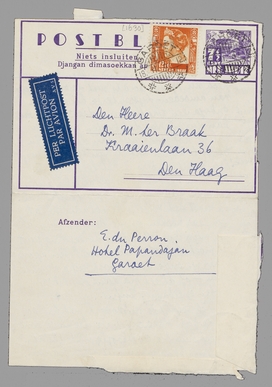 POSTBL
Niets insluiten
Djangan dimasoekkan
PER LUCHTPOST
PAR AVION
Den Heere
Dr. M. ter Braak
Kraaienlaan 36
Den Haag
Afzender:
E. du Perron
Hotel Papandajan
Garoet